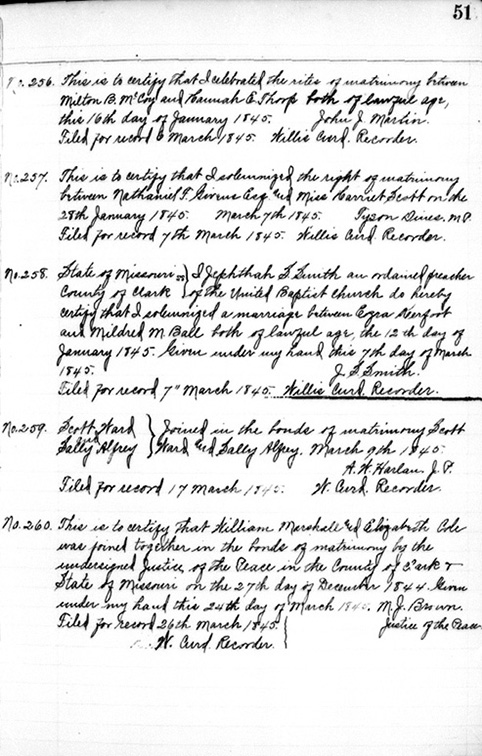 51
No. 256. This is to certify that I celebrated the rites of matrimony between
Milton B. McCoy and Hannah E. Thorp both of lawful age,
this 16th day of January 1845. John J. Martin.
Filed for record 6 March 1845. Willis Curd. Recorder.
No. 257. This is to certify that I solemnized the right of matrimony
between Nathaniel T. Givens Esq. and Miss Harriet Scott on the
28th January 1845. March 7th 1845. Tyson Dines. M.P.
Filed for record 7th March 1845. Willis Curd. Recorder.
No. 258. State of Missouri ss } I Jephthah S. Smith an ordained preacher
County of Clark } of the United Baptist Church do hereby
certify that I solemnized a marriage between Ezra Neerfoot
and Mildred M. Ball both of lawful age, the 12th day of
January 1845. Given under my hand this 7th day of March
1845. J. S. Smith.
Filed for record 7" March 1845. Willis Curd. Recorder.
No. 259. Scott Ward } Joined in the bonds of matrimony Scott
Sally Alfrey } Ward and Sally Alfrey. March 9th 1845.
A. W. Harlan. J. P.
Filed for record 17 March 1845. W. Curd. Recorder.
No. 260. This is to certify that William Marshall and Elizabeth Cole
was joined together in the bonds of matrimony by the
undersigned Justice of the Peace in the County of Clark &
State of Missouri on the 27th day of December 1844. Given
under my hand this 24th day of March 1845. M. J. Brown.
Filed for record 26th March 1845. } Justice of the Peace
W. Curd. Recorder. }